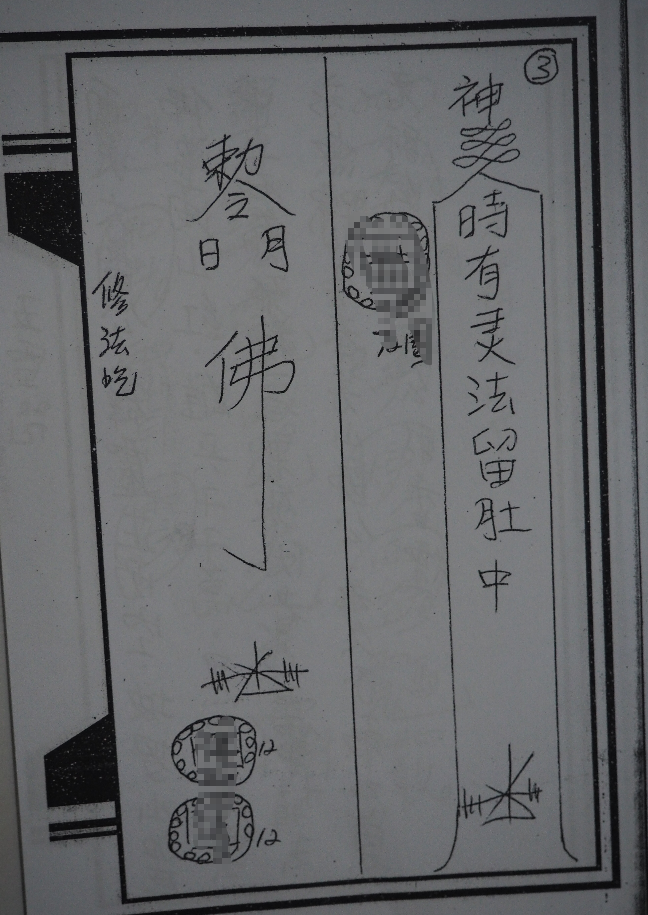 ③
神
時有灵法留肚中
勅令
日月
佛
12
12
修法吃